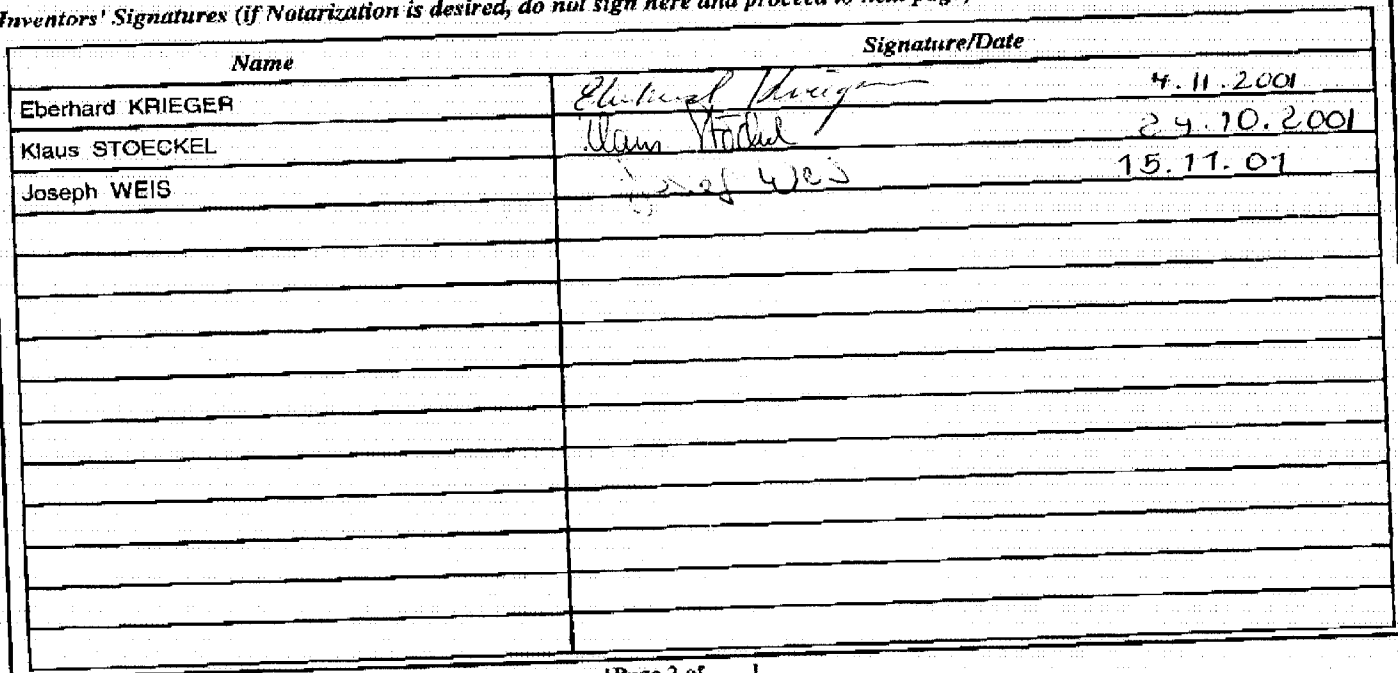 Inventors' Signatures (if Notarization is desired, do not sign here and proceed to next page)
Name Signature/Date
Eberhard KRIEGER Eberhard Krieger 4.11.2001
Klaus STOECKEL Klaus Stöckel 24.10.2001
Joseph WEIS Josef Weis 15.11.01
[Page 2 of ]